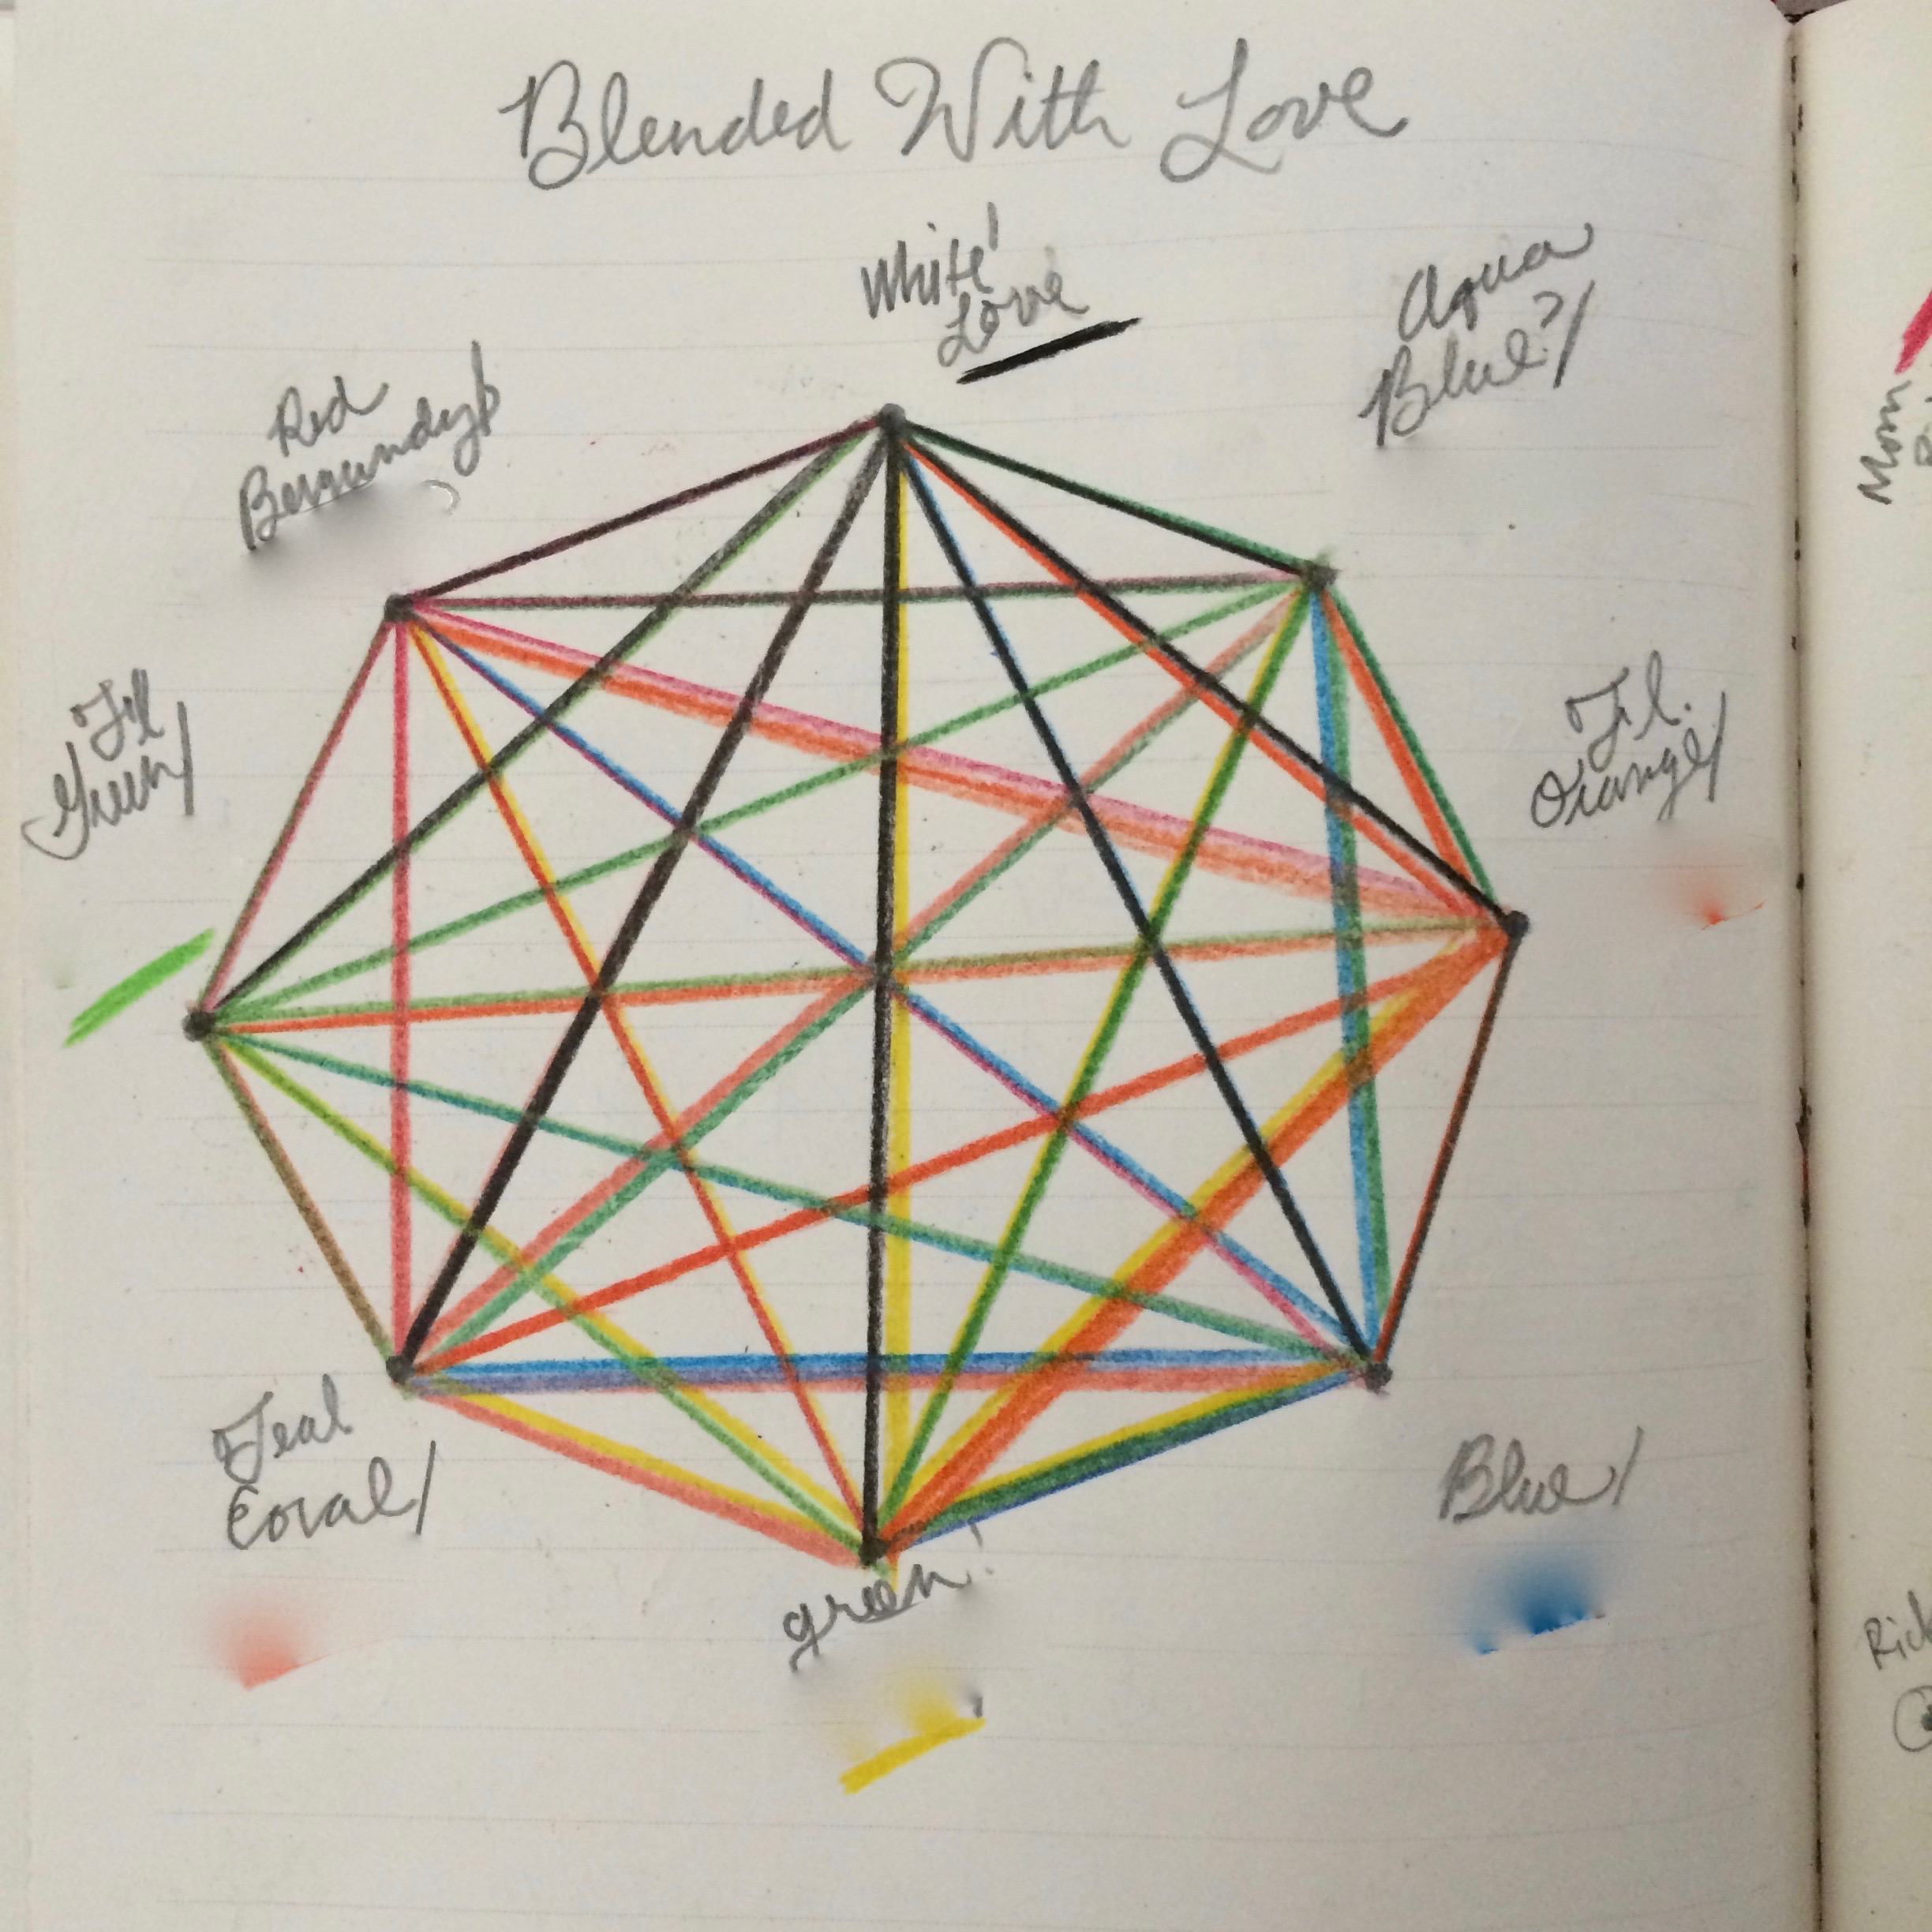 Blended With Love
White
Love
Aqua
Blue?/
Red
Bergundy/
Fl
Green/
Fl.
Orange/
Teal
Coral/
Blue/
green
Mom
Rick